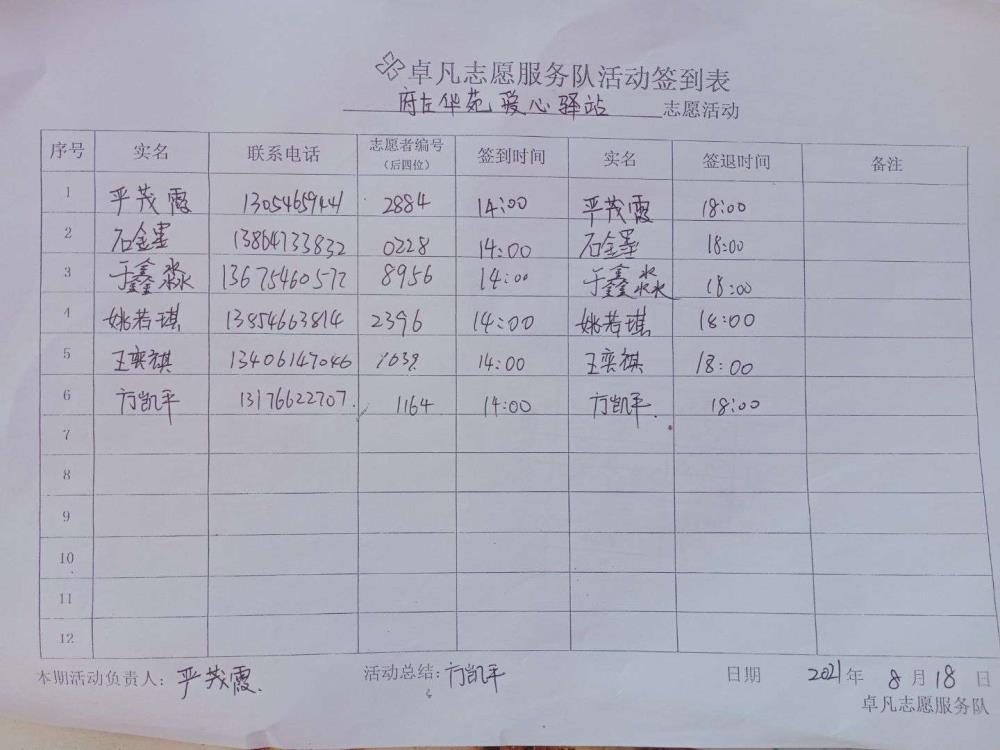 卓凡志愿服务队活动签到表
府左华苑爱心驿站 志愿活动
序号 实名 联系电话 志愿者编号(后四位) 签到时间 实名 签退时间 备注
1 严茂霞 13054659441 2884 14:00 严茂霞 18:00
2 石金墨 13864733832 0228 14:00 石金墨 18:00
3 于鑫淼 13675460572 8956 14:00 于鑫淼 18:00
4 姚若琪 13854663814 2396 14:00 姚若琪 18:00
5 王奕祺 13406147046 14:00 王奕祺 18:00
6 方凯平 13176622707 1164 14:00 方凯平 18:00
7
8
9
10
11
12
本期活动负责人: 严茂霞 活动总结: 方凯平 日期 2021年 8月18日
卓凡志愿服务队